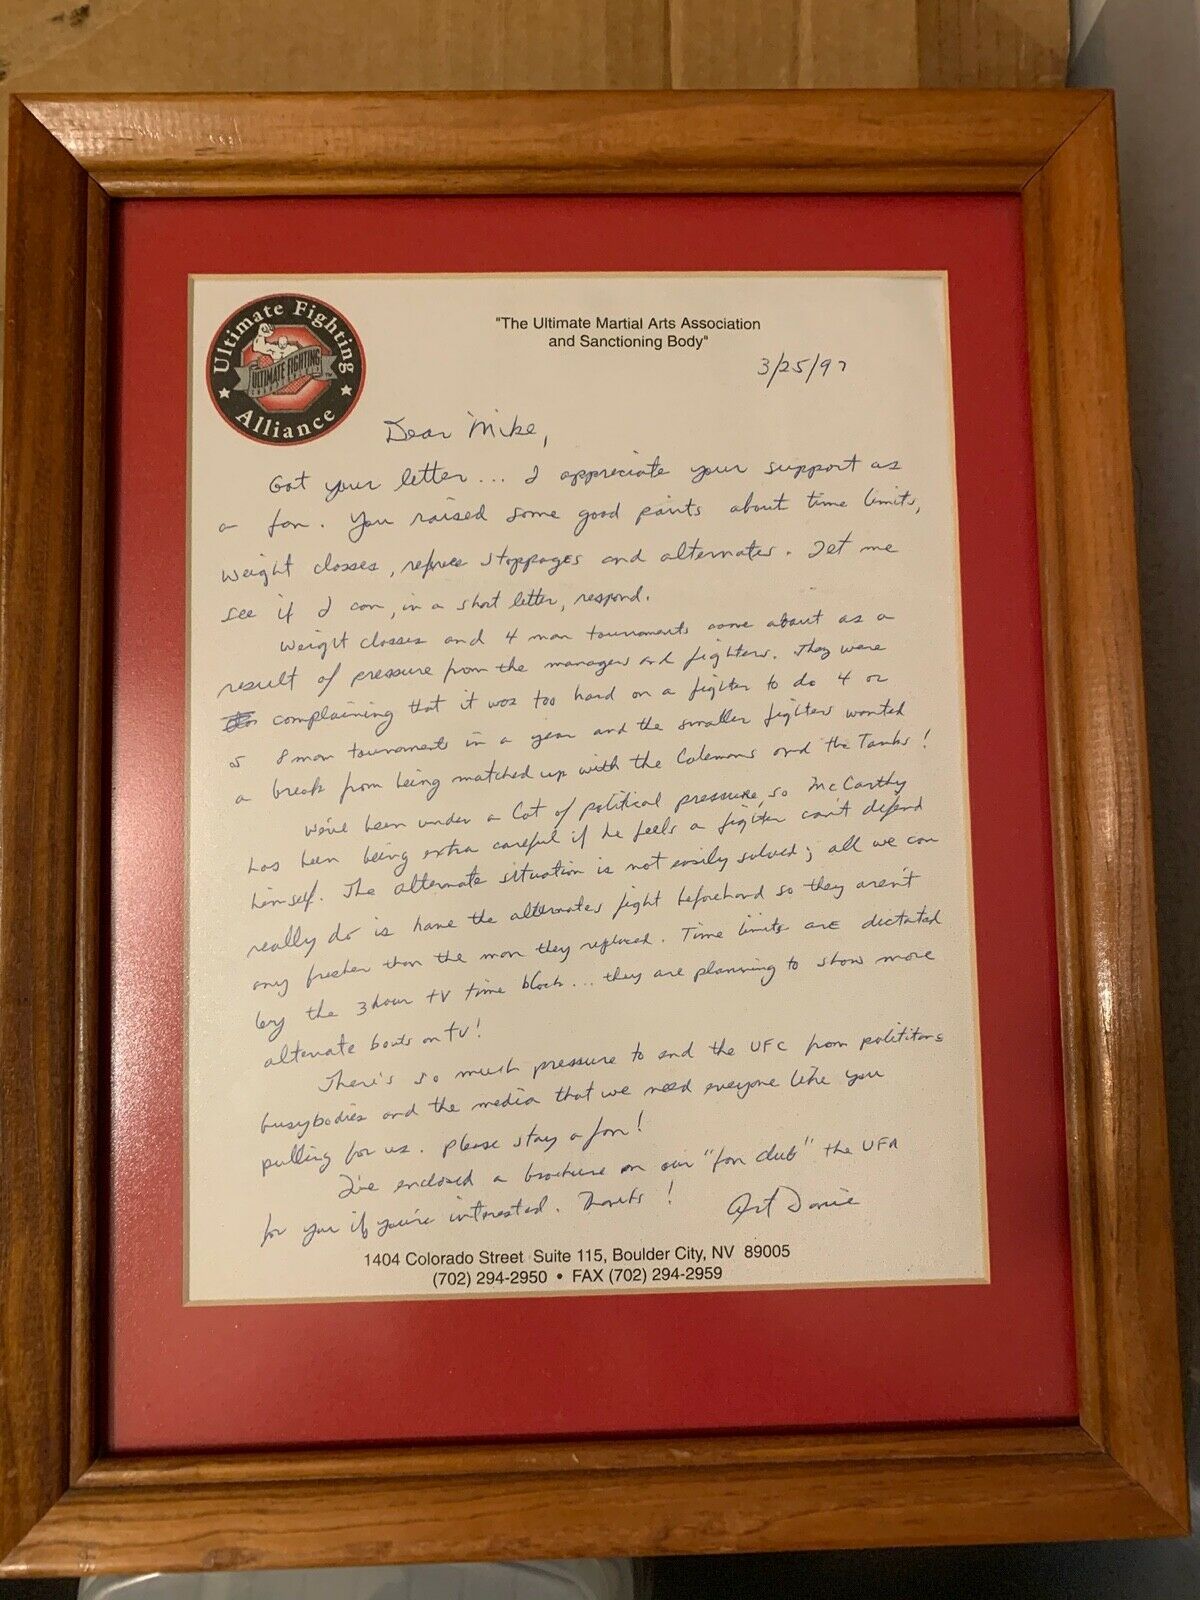 Ultimate Fighting
ULTIMATE FIGHTING
Alliance
"The Ultimate Martial Arts Association
and Sanctioning Body"
3/25/97
Dear Mike,
Got your letter... I appreciate your support as
a fan. You raised some good points about time limits,
weight classes, referee stoppages and alternates. Let me
see if I can, in a short letter, respond.
Weight classes and 4 man tournaments came about as a
result of pressure from the managers and fighters. They were
complaining that it was too hard on a fighter to do 4 or
5 8 man tournaments in a year and the smaller fighters wanted
a break from being matched up with the Colemans and the Tanks!
We've been under a lot of political pressure, so McCarthy
has been being extra careful if he feels a fighter can't defend
himself. The alternate situation is not easily solved; all we can
really do is have the alternates fight beforehand so they aren't
any fresher than the man they replaced. Time limits are dictated
by the 3 hour TV time block... they are planning to show more
alternate bouts on TV!
There's so much pressure to end the UFC from polititans
busybodies and the media that we need everyone like you
pulling for us. Please stay a fan!
I've enclosed a brochure on our "fan club" the UFA
for you if you're interested. Thanks! Art Davie
1404 Colorado Street Suite 115, Boulder City, NV 89005
(702) 294-2950 • FAX (702) 294-2959